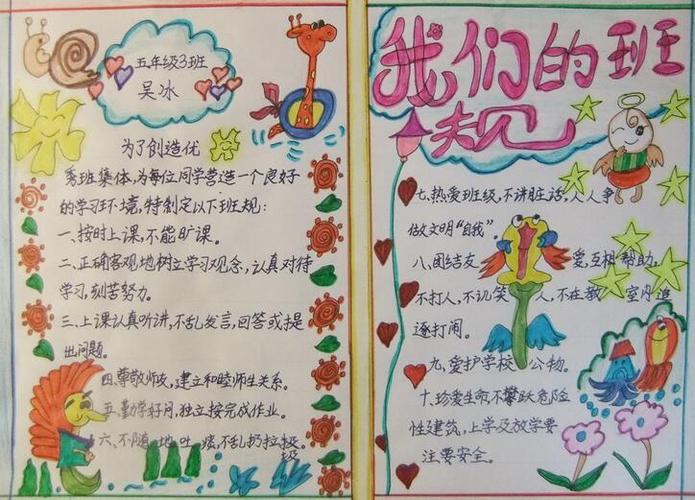 五年级3班
吴冰
为了创造优
秀班集体,为每位同学营造一个良好
的学习环境,特制定以下班规:
一、按时上课,不能旷课。
二、正确客观地树立学习观念,认真对待
学习,刻苦努力。
三、上课认真听讲,不乱发言,回答或提
出问题。
四、尊敬师友,建立和睦师生关系。
五、勤学好问,独立按完成作业。
六、不随地吐痰,不乱扔垃圾
圾
我们的班
规
七、热爱班级,不讲脏话,人人争
做文明“自我”。
八、团结友爱,互相帮助,
不打人,不讥笑人,不在教室内追
逐打闹。
九、爱护学校公物。
十、珍爱生命不攀跃危险
性建筑,上学及放学要
注要安全。